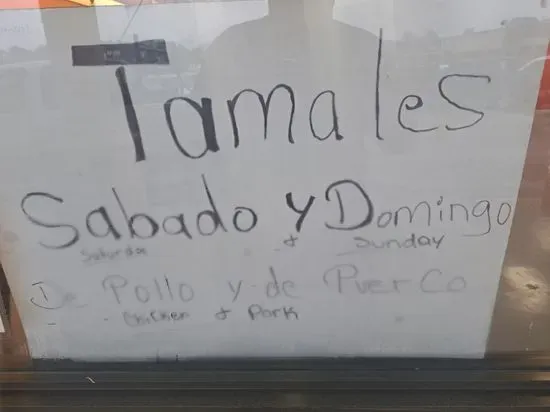 Tamales
Sabado y Domingo
Saturday & Sunday
De Pollo y de Puerco
Chicken & Pork